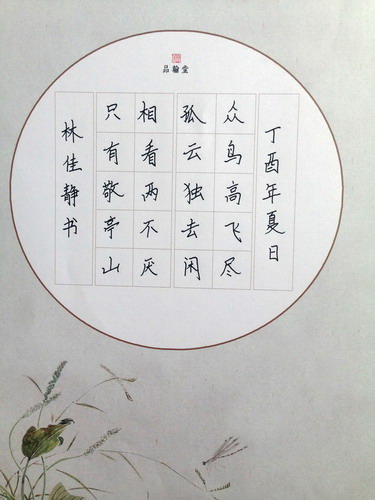 品翰堂
丁酉年夏日
众鸟高飞尽
孤云独去闲
相看两不厌
只有敬亭山
林佳静书